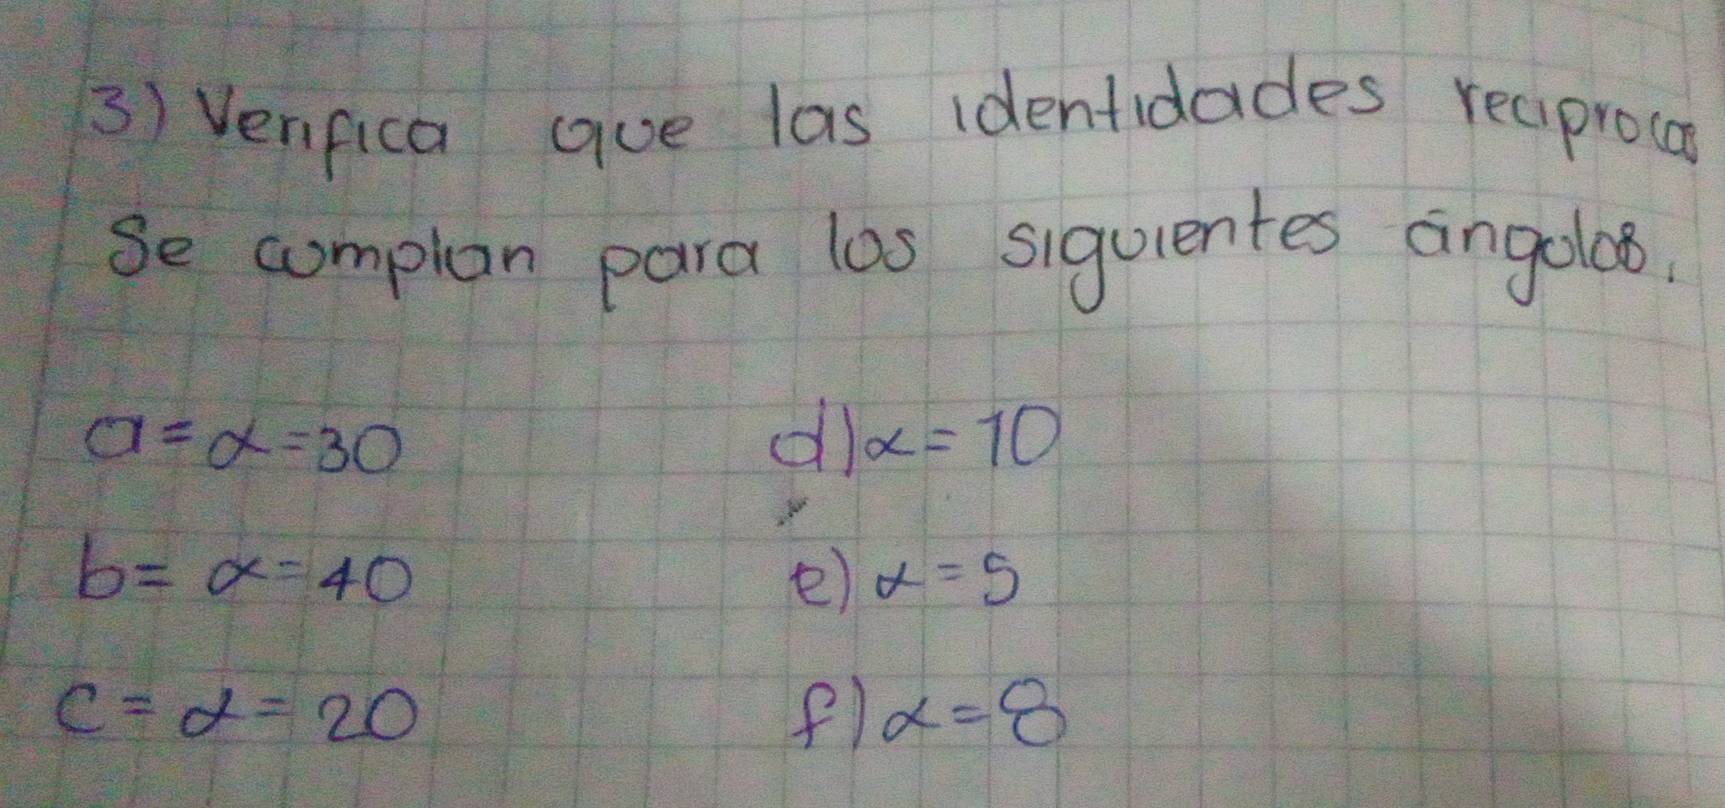 3) Verifica que las identidades reciprocas
Se complan para los siguientes ángulos.
a = α = 30 d) α = 10
b = α = 40 e) α = 5
c = α = 20 f) α = 8